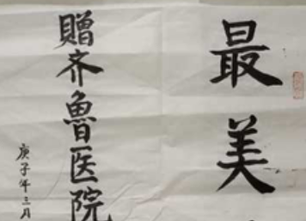 最美
贈齐魯医院
庚子年三月